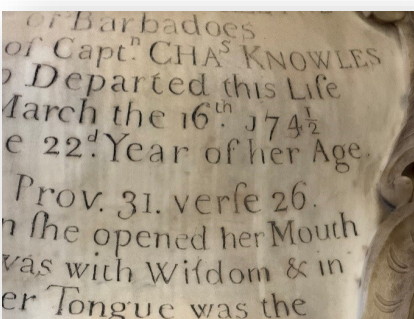 of Barbadoes
of Captⁿ. CHAˢ KNOWLES
Departed this Life
March the 16ᵗʰ. 174½
e 22ᵈ. Year of her Age.
Prov. 31. verſe 26.
n ſhe opened her Mouth
was with Wiſdom & in
er Tongue was the